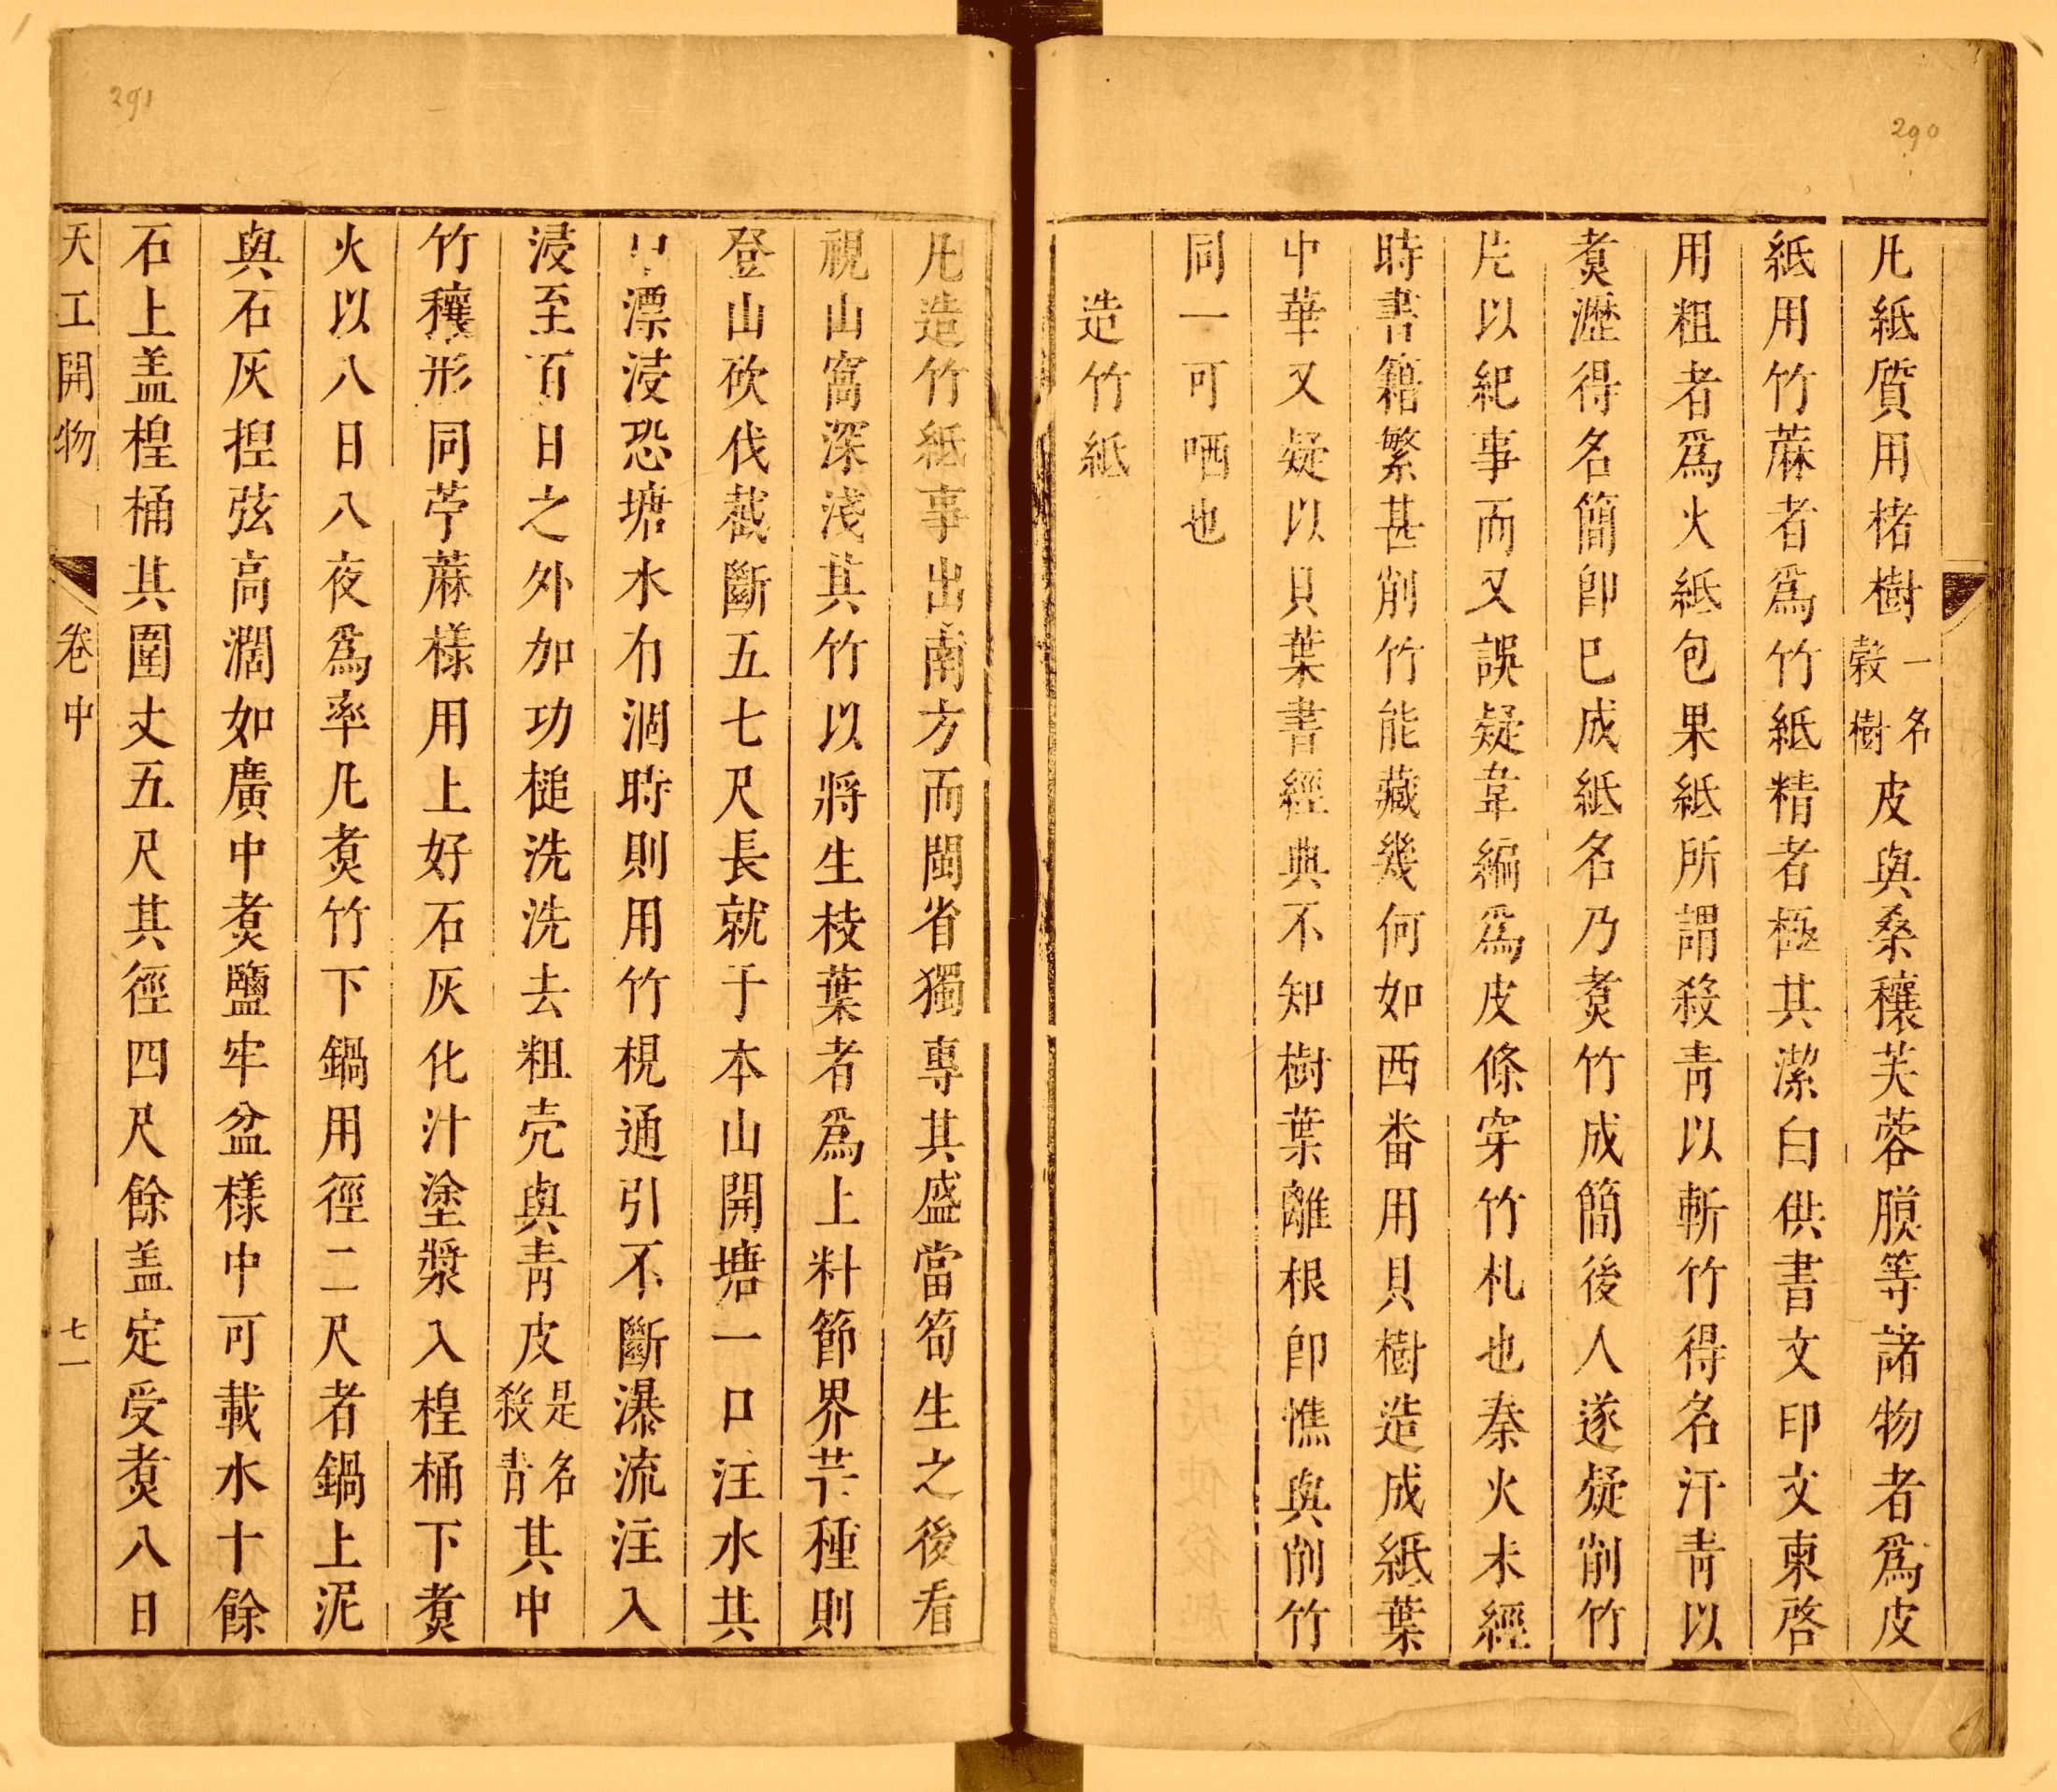 290
凢紙質用楮樹一名榖樹皮與桑穰芙蓉膜等諸物者爲皮
紙用竹蔴者爲竹紙精者極其潔白供書文印文柬啓
用粗者爲火紙包果紙所謂殺青以斬竹得名汗青以
煑瀝得名簡卽巳成紙名乃煑竹成簡後人遂疑削竹
片以紀事而又誤疑韋編爲皮條穿竹札也秦火未經
時書籍繁甚削竹能藏幾何如西畨用貝樹造成紙葉
中華又疑以貝葉書經典不知樹葉離根卽憔與削竹
同一可哂也
造竹紙
291
凢造竹紙事出南方而閩省獨專其盛當筍生之後看
視山窩深淺其竹以將生枝葉者爲上料節界芒種則
登山砍伐截斷五七尺長就于本山開塘一口注水其
中漂浸恐塘水有涸時則用竹梘通引不斷瀑流注入
浸至百日之外加功槌洗洗去粗壳與青皮是名殺青其中
竹穰形同苧蔴樣用上好石灰化汁塗漿入楻桶下煑
火以八日八夜爲率凢煑竹下鍋用徑二尺者鍋上泥
與石灰揑弦高濶如廣中煑鹽牢盆樣中可載水十餘
石上盖楻桶其圍丈五尺其徑四尺餘盖定受煑八日
天工開物 卷中 七一